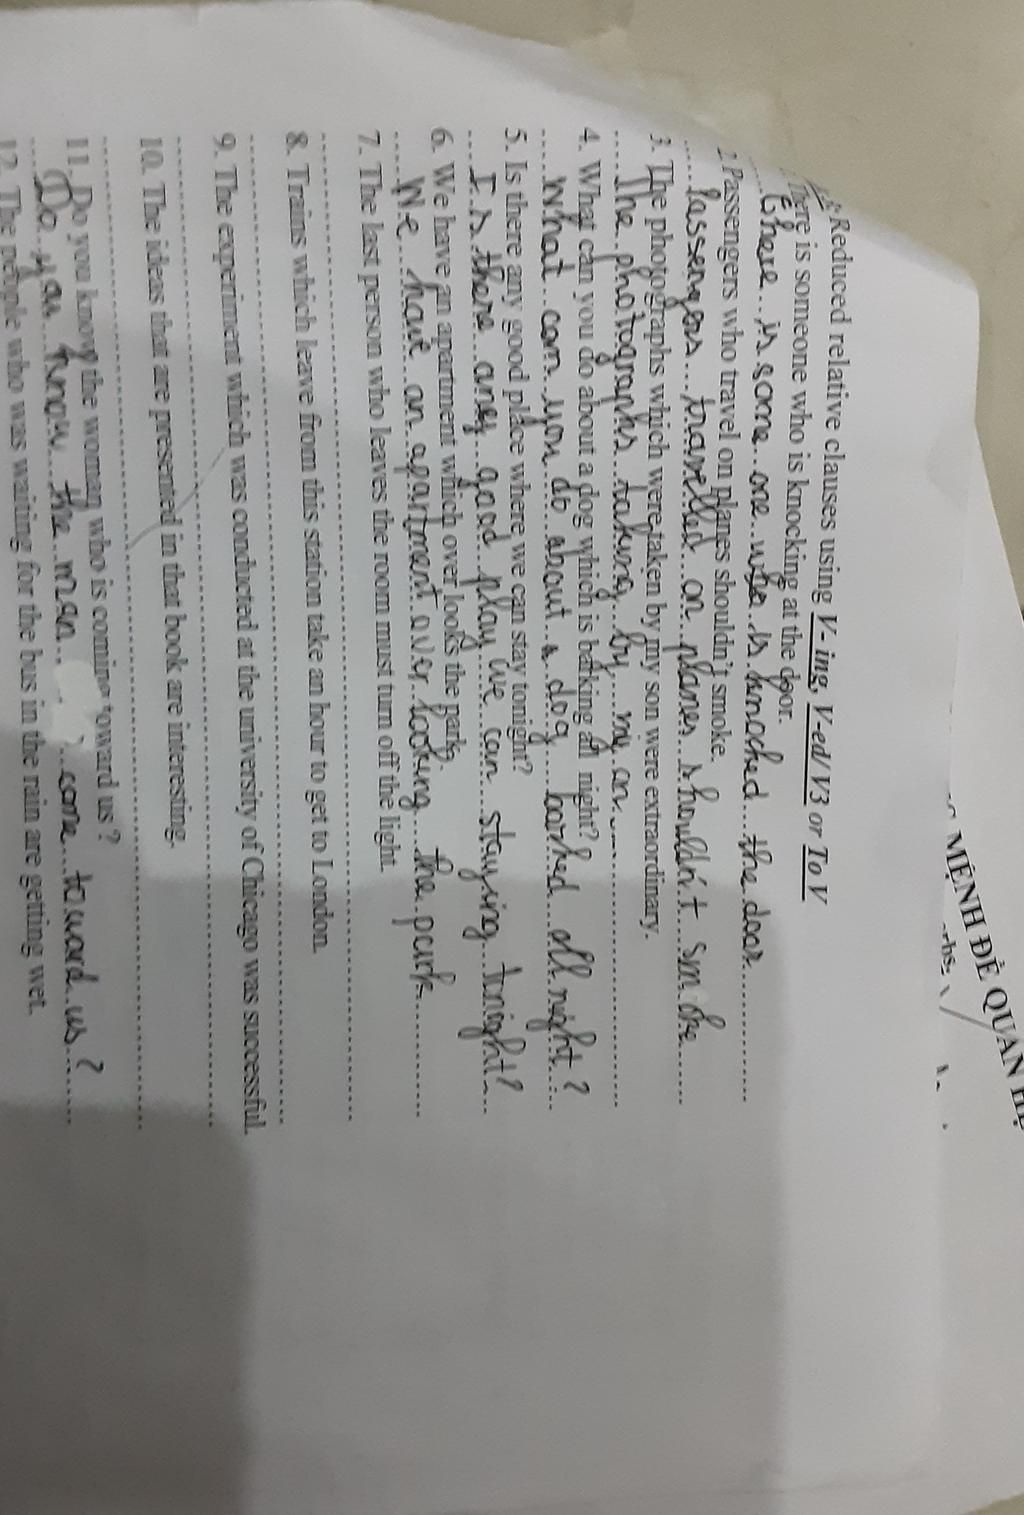 MỆNH ĐỀ QUAN HỆ
Reduced relative clauses using V- ing, V-ed/ V3 or To V
is someone who is knocking at the door.
There is some one who is knocked the door
2. Passengers who travel on planes shouldn't smoke.
Passengers travelled on planes shouldn't smoke
3. The photographs which were taken by my son were extraordinary.
The photographs taking by my on
4. What can you do about a dog which is barking all night?
What can you do about a dog barked all night?
5. Is there any good place where we can stay tonight?
Is there any good play we can staying tonight?
6. We have an apartment which over looks the park.
We have an apartment over looking the park
7. The last person who leaves the room must turn off the light.
8. Trains which leave from this station take an hour to get to London.
9. The experiment which was conducted at the university of Chicago was successful.
10. The ideas that are presented in that book are interesting.
11. Do you know the woman who is coming toward us ?
Do you know the man come toward us ?
12. The people who was waiting for the bus in the rain are getting wet.